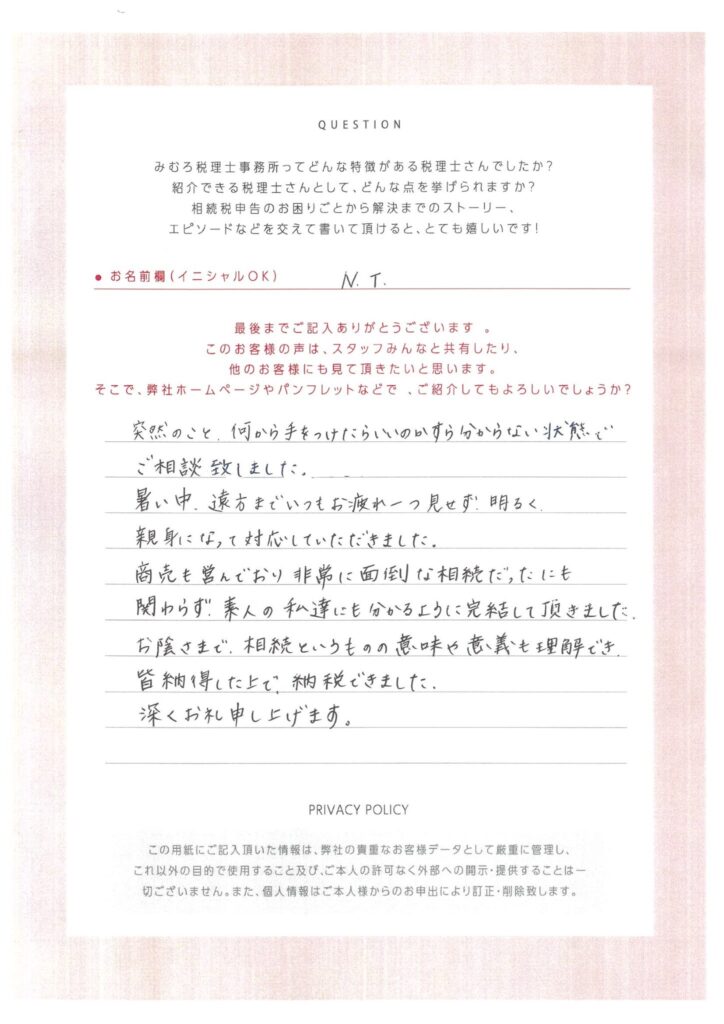 QUESTION
みむろ税理士事務所ってどんな特徴がある税理士さんでしたか？
紹介できる税理士さんとして、どんな点を挙げられますか？
相続税申告のお困りごとから解決までのストーリー、
エピソードなどを交えて書いて頂けると、とても嬉しいです！
● お名前欄（イニシャルOK） N. T.
最後までご記入ありがとうございます 。
このお客様の声は、スタッフみんなと共有したり、
他のお客様にも見て頂きたいと思います。
そこで、弊社ホームページやパンフレットなどで 、ご紹介してもよろしいでしょうか？
突然のこと、何から手をつけたらいいのかすら分からない状態で
ご相談致しました。
暑い中、遠方までいつもお疲れ一つ見せず、明るく、
親身になって対応していただきました。
商売も営んでおり非常に面倒な相続だったにも
関わらず、素人の私達にも分かるように完結して頂きました。
お陰さまで、相続というものの意味や意義も理解でき、
皆納得した上で、納税できました。
深くお礼申し上げます。
PRIVACY POLICY
この用紙にご記入頂いた情報は、弊社の貴重なお客様データとして厳重に管理し、
これ以外の目的で使用すること及び、ご本人の許可なく外部への開示・提供することは一
切ございません。また、個人情報はご本人様からのお申出により訂正・削除致します。